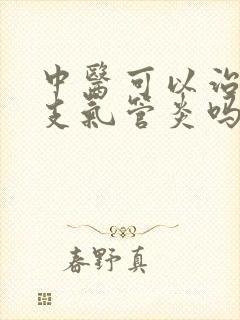 中醫可以治
支氣管炎吗
春野真